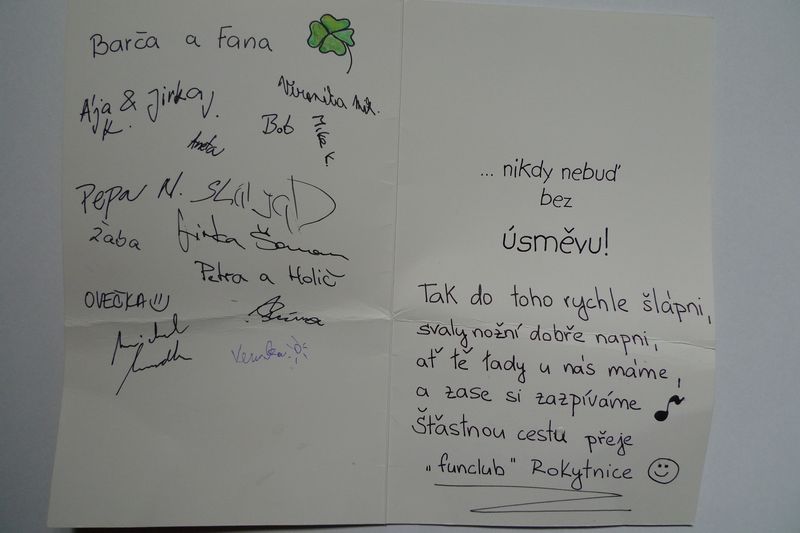 Barča a Fana
Ája & Jirka
K.
Veronika
Aneta
Bob
Pepa N.
Žába
Jirka
Petra a Holič
OVEČKA
Michal
Verunka
... nikdy nebuď
bez
úsměvu!
Tak do toho rychle šlápni,
svaly nožní dobře napni,
ať tě tady u nás máme,
a zase si zazpíváme
Šťastnou cestu přeje
„funclub" Rokytnice